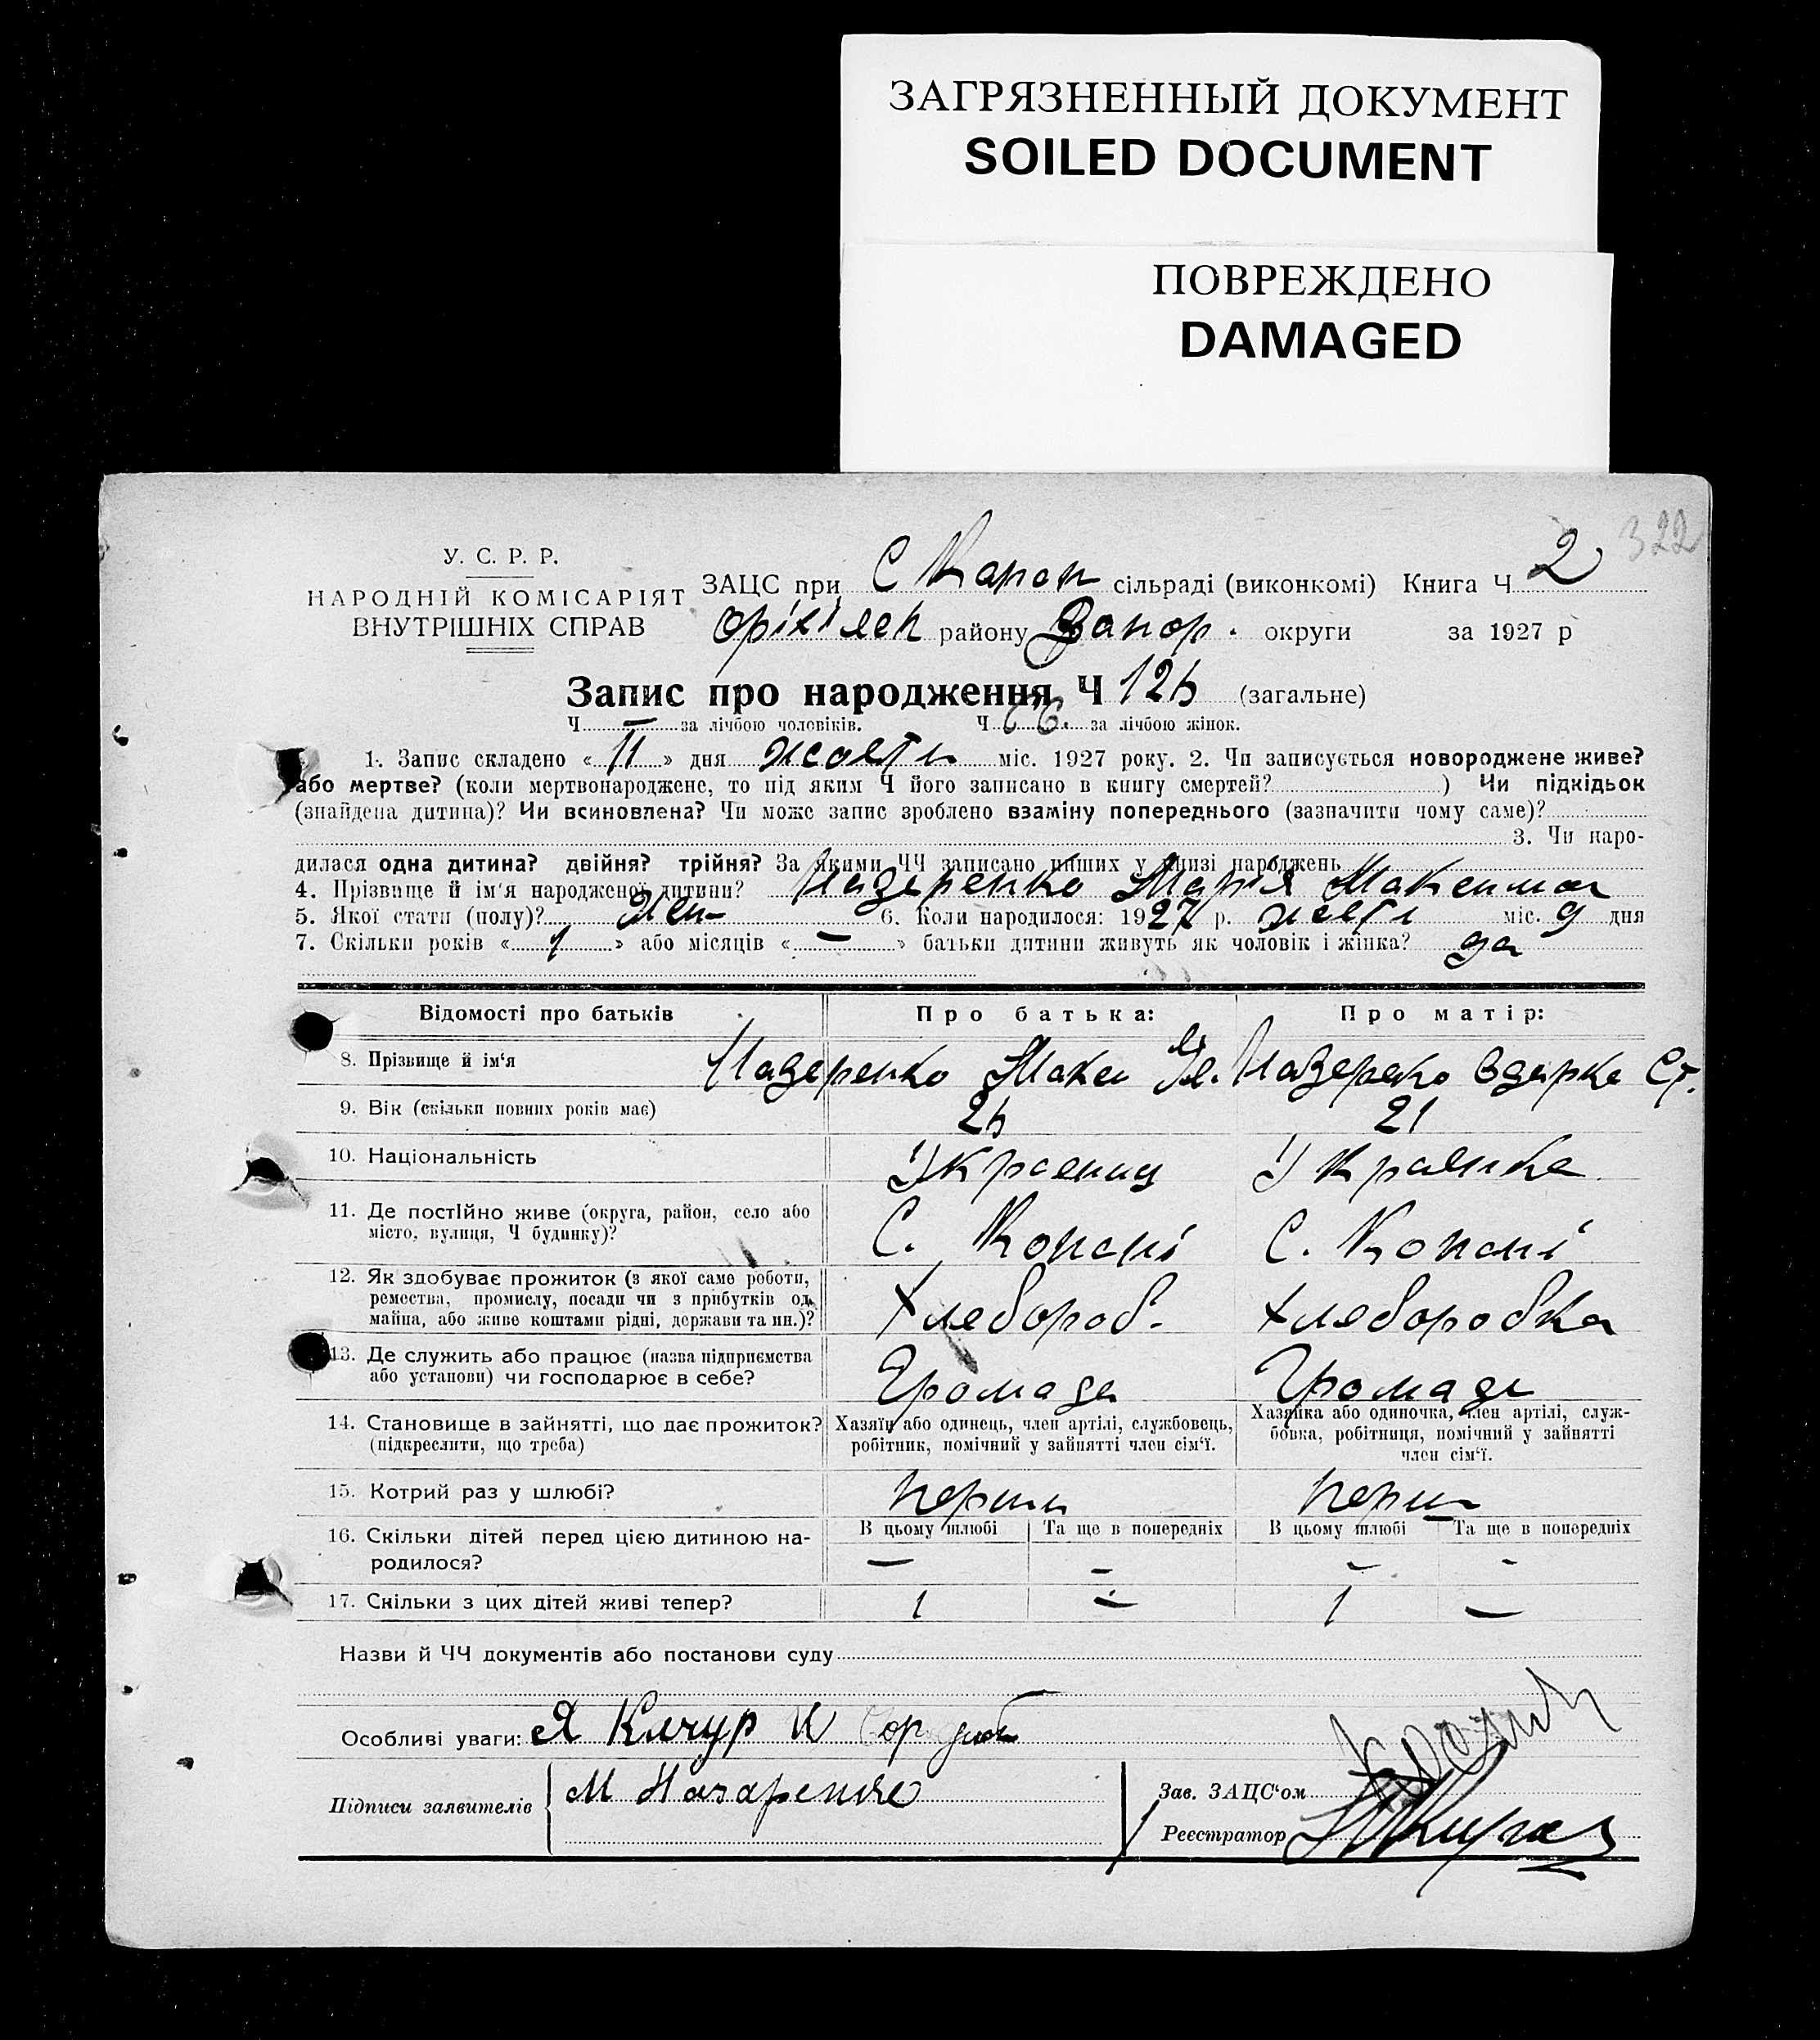 ЗАГРЯЗНЕННЫЙ ДОКУМЕНТ
SOILED DOCUMENT
ПОВРЕЖДЕНО
DAMAGED
322
У. С. Р. Р.
НАРОДНІЙ КОМІСАРІЯТ
ВНУТРІШНІХ СПРАВ
ЗАЦС при С Капан сільраді (виконкомі) Книга Ч 2
району Запор. округи за 1927 р
Запис про народження Ч 125 (загальне)
Ч — за лічбою чоловіків. Ч 66. за лічбою жінок.
1. Запис складено « 11 » дня жовтн міс. 1927 року. 2. Чи записується новороджене живе?
або мертве? (коли мертвонароджене, то під яким Ч його записано в книгу смертей? ) Чи підкідьок
(знайдена дитина)? Чи всиновлена? Чи може запис зроблено взаміну попереднього (зазначити чому саме)?
3. Чи наро-
дилася одна дитина? двійня? трійня? За якими ЧЧ записано инших у книзі народжень
4. Прізвище й ім'я народженої дитини? Назаренко Марія Максимов
5. Якої стати (полу)? Жен- 6. Коли народилося: 1927 р. жовт міс. 9 дня
7. Скільки років « 1 » або місяців « — » батьки дитини живуть як чоловік і жінка? да
Відомості про батьків Про батька: Про матір:
8. Прізвище й ім'я Назеренко Макси Назеренко Одарка Ст.
9. Вік (скільки повних років має) 25 21
10. Національність Украениц Украенка
11. Де постійно живе (округа, район, село або С. Копані С. Копані
місто, вулиця, Ч будинку)?
12. Як здобуває прожиток (з якої саме роботи,
ремества, промислу, посади чи з прибутків од Хлебороб. Хлеборобка
майна, або живе коштами рідні, держави та ин.)?
13. Де служить або працює (назва підприємства
або установи) чи господарює в себе? Громада Громада
14. Становище в зайнятті, що дає прожиток? Хазяїн або одинець, член артілі, службовець, Хазяйка або одиночка, член артілі, служ-
(підкреслити, що треба) робітник, помічний у зайнятті член сім'ї. бовка, робітниця, помічний у зайнятті
член сім'ї.
15. Котрий раз у шлюбі? перши перш
16. Скільки дітей перед цією дитиною на- В цьому шлюбі Та ще в попередніх В цьому шлюбі Та ще в попередніх
родилося? — — — —
17. Скільки з цих дітей живі тепер? 1 — 1 —
Назви й ЧЧ документів або постанови суду
Особливі уваги: Я
Підписи заявителів М Назаренко
Зав. ЗАЦС'ом
Реєстратор